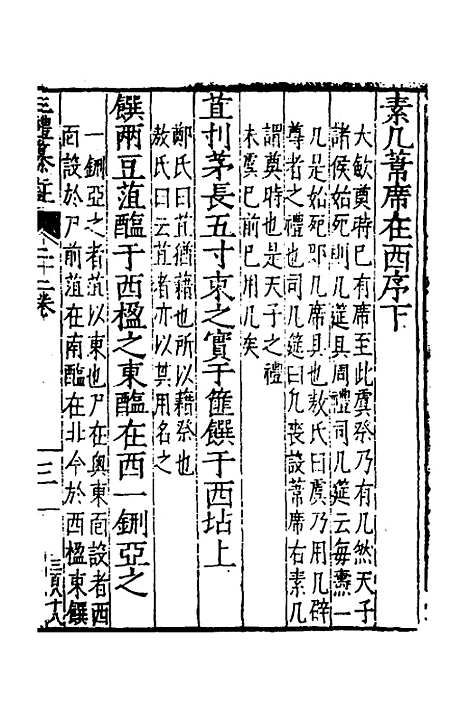 素几葦席在西序下
大歛奠時已有席至此虞祭乃有几然天子
諸侯始死則几筵具周禮司几筵云每燾一
几是始死即几席具也敖氏曰虞乃用几辟
尊者之禮也司几筵曰凡喪設葦席右素几
謂奠時也是天子之禮
未虞已前已用几矣
苴刌茅長五寸束之實于篚饌于西坫上
鄭氏曰苴猶藉也所以藉祭也
敖氏曰云苴者亦以其用名之
饌兩豆菹醢于西楹之東醢在西一鉶亞之
一鉶亞之者菹以東也尸在奥東面設者西
面設於尸前菹在南醢在北今於西楹東饌
三禮纂註
二十二卷
三
三頁十八